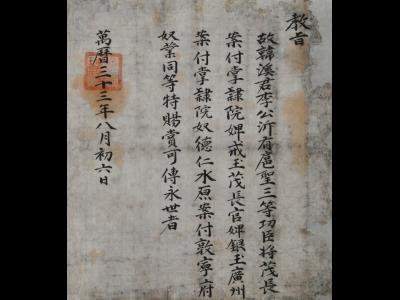 教旨
故韓溪君李公沂有扈聖三等功臣將茂長
案付掌隷院婢戒玉茂長官婢銀玉廣州
案付掌隷院奴德仁水原案付敦寧府
奴業同等特賜賞可傳永世者
萬曆三十三年八月初六日